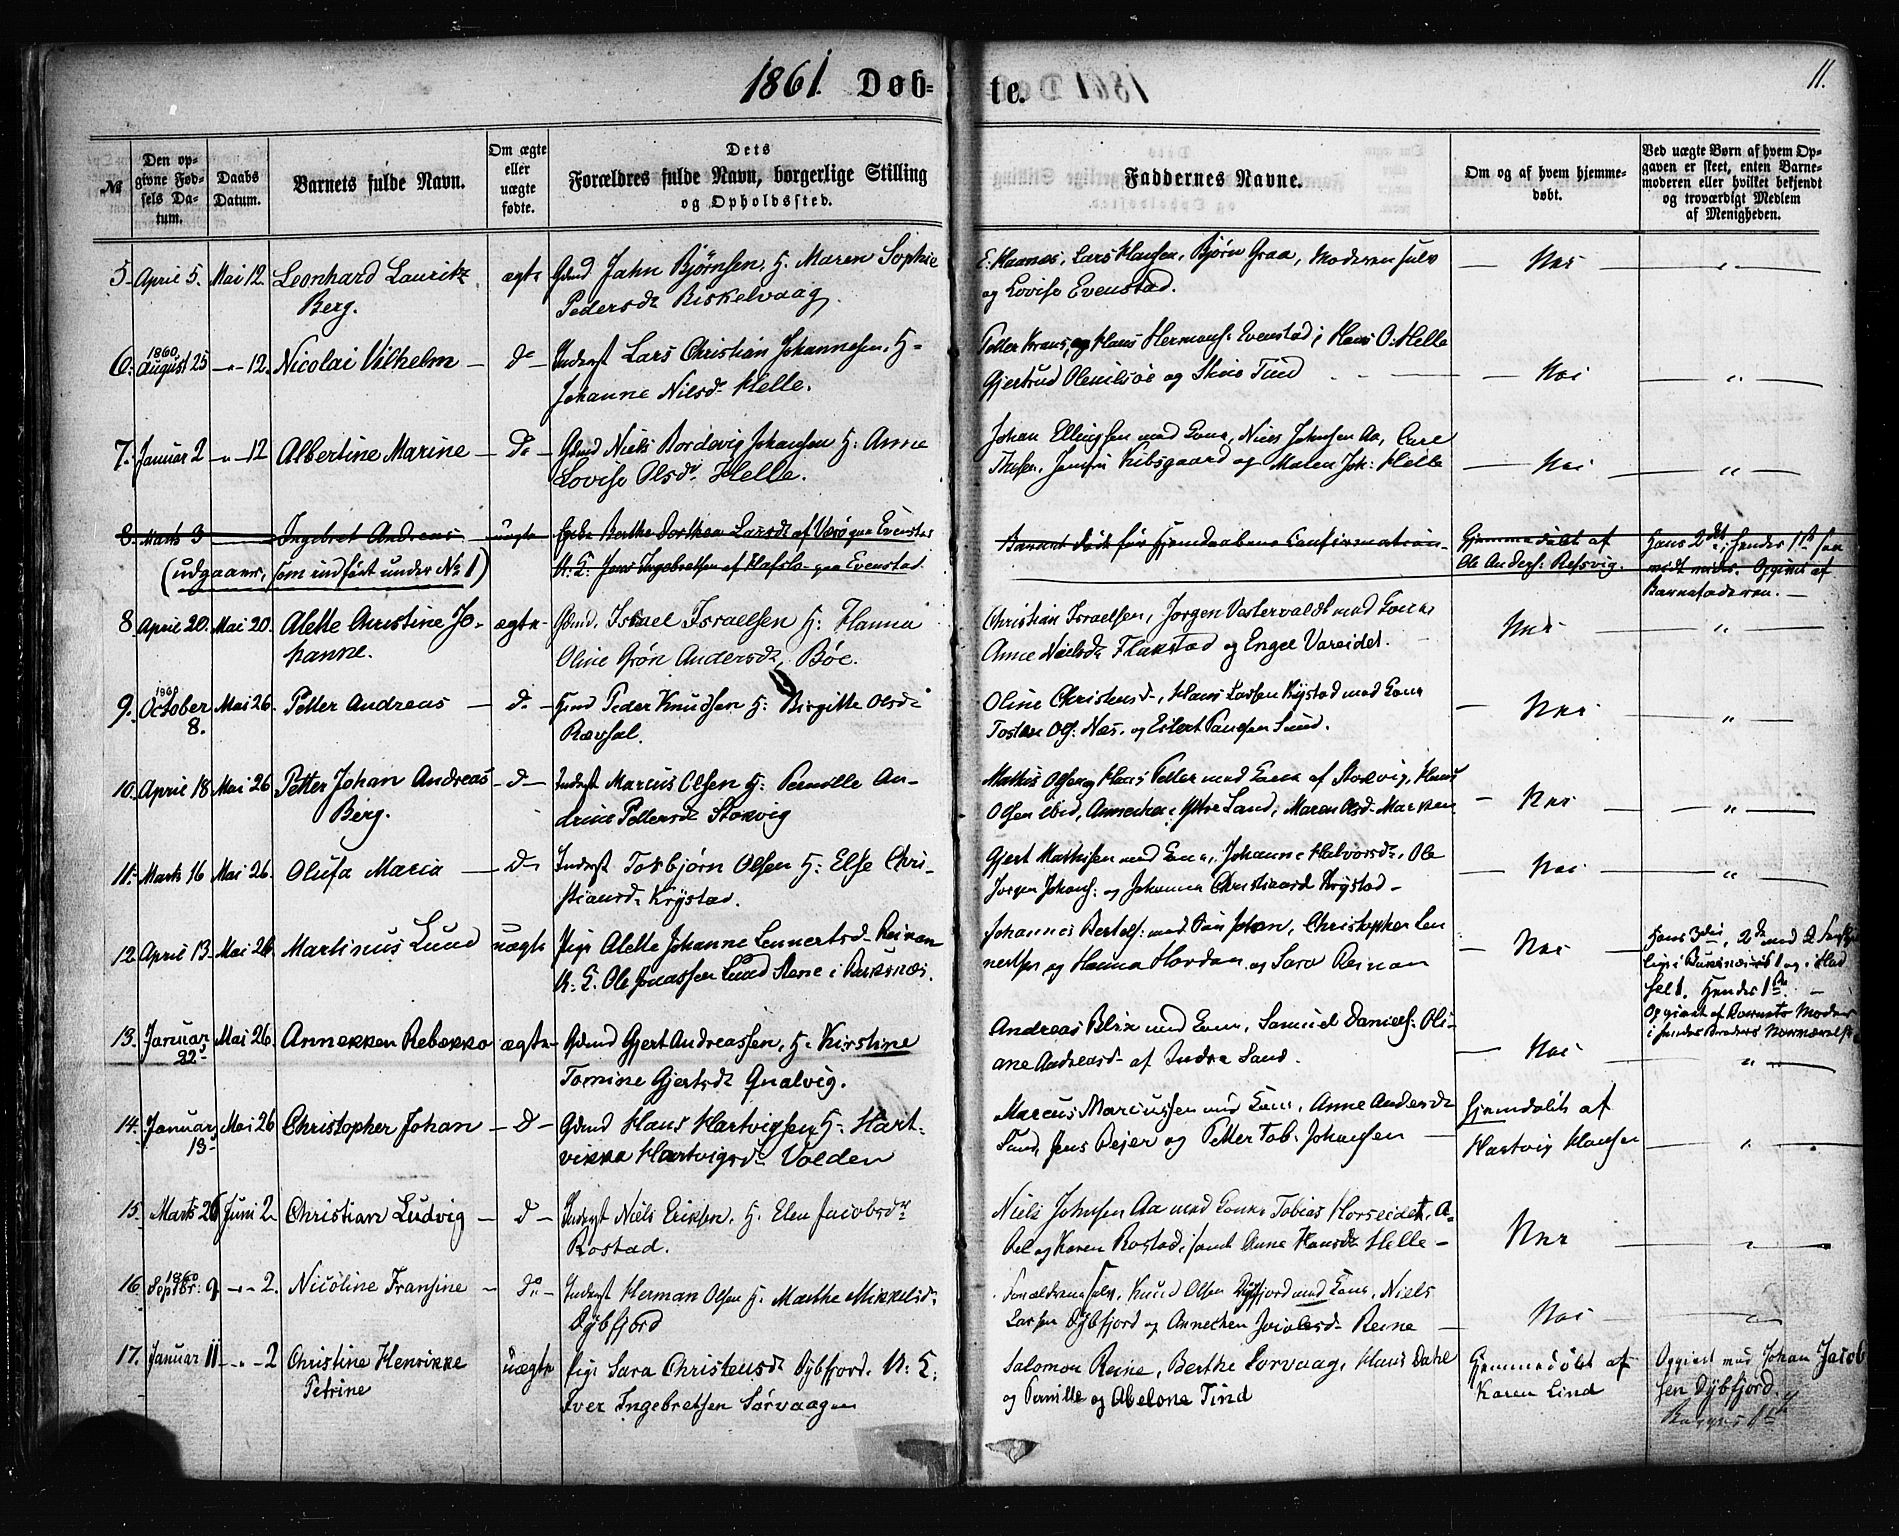 1861. Døb-
te.
11.
№
Den op-
givne Fød-
sels Da-
tum.
Daabs
Datum.
Barnets fulde Navn.
Om ægte
eller
uægte
fødte.
Dets
Forældres fulde Navn, borgerlige Stilling
og Opholdssted.
Faddernes Navne.
Om og af hvem hjemme-
døbt.
Ved uægte Børn af hvem Op-
gaven er skeet, enten Barne-
moderen eller hvilket bekjendt
og troværdigt Medlem
af Menigheden.
5. April 5. Mai 12. Leonhard Lauritz ægte Gdmd Jahn Bjørnsen, H. Maren Sophie
Berg. Pedersdr
E. Hannes, Lars Hansen, Bjørn Graa, Moderen selv — Nei — "
og Lovise Evenstad.
6. 1860 August 25 -"- 12. Nicolai Vilhelm — do Inderst Lars Christian Johannesen, H-
Johanne Nilsdr Helle.
Petter Krans, og Hans Hermans: Evenstad, Hans O: Helle
Gjertrud og Tind — Nei — "
7. Januar 2 -"- 12 Albertine Marine — Do — Gdmd Niels Bordevig Johansen H: Anne
Lovise Olsdr Helle.
Johan Ellingsen med Kone, Niels Johnsen Aa, Carl
Kibsgaard og Maren Joh: Helle — Nei — "
8. Marts 3 — Ingebret Andreas — uægte Pige Berthe Dorthea Larsdr af Værø paa Evenstad
(udgaaer, som indført under No 1) U: E: Jens Ingebretsen af Hafslo paa Evenstad.
Barnet døde før Hjemdaabens Confirmation —
Hjemmedøbt af
Ole Anders: Refsvig.
Hans 2det, hendes 1ste
Opgivet af
Barnefaderen. —
8 April 20. Mai 20. Alette Christine Jo- ægte — Gdmd. Israel Israelsen H: Hanna
hanne. Oline Grøn Andersdr Bøe.
Christian Israelsen, Jørgen Vestervaldt med Kone
Anne Nielsdr Flakstad og Engel Vareidet. Nei — "
9. 1860 October 8. Mai 26. Petter Andreas — do — Gmd Peder Knudsen H: Birgitte Olsdr
Rævsal.
Oline Christensd., Hans Larsen Krystad med Kone
Tosten Ols: Næs. og Eilert Paulsen Sund. — Nei — "
10. April 18 Mai 26 Petter Johan Andreas — do — Inderst Marcus Olsen H: Pernille An-
Berg. drine Pettersdr Stokvig
Mathis Olsen og Hans Petter med Kone af Stokvig, Hans
Olsen ibid, Annechen Ytre Sand, Maren Olsd. Marken — Nei — "
11. Marts 16 Mai 26. Olufa Maria — do Inderst Torbjørn Olsen H: Else Chri-
stiansdr Krystad.
Gjert Mathisen med Kone, Johanne Halvorsdr, Ole
Jørgen Johans: og Johanna Christiansd Krystad — — Nei — "
12 April 13. Mai 26 Martinus Lund uægte Pige Alette Johanne Lennertsdr Reinan
U: E: Ole Jonassen Lund Stene i Buksnæs.
Johannes Bertels: med Søn Johan, Christopher Len
nertsen og Hanna Hordan og Sara Reinan — Nei —
Hans 3die, 2de med 2
i Buksnæs 1 og i Had
sel 1. Hendes 1ste. —
Opgivet af Barnets Moder
i hendes Broders Nærværelse
13. Januar 22. Mai 26 Annekken Rebekka ægte — Gdmd Gjert Andreassen, H. Kirstine
Tomine Gjertsdr Qualvig.
Andreas Blix med Kone, Samuel Daniels: Oli-
ane Andreasdr af Indre Sand. — Nei — "
14. Januar 13. Mai 26 Christopher Johan — do — Gdmd Hans Hartvigsen, H. Hart-
vikka Hartvigsdr Volden
Marcus Marcussen med Kone, Anne Andersdr
Sund, Jens Rejer og Petter Tob: Johansen —
Hjemdøbt af
Hartvig Hansen — "
15. Marts 26 Juni 2. Christian Ludvig — do — Inderst Niels Eriksen, H. Elen Jacobsdr
Rostad.
Niels Johnsen Aa med Kone Tobias Horseidet, A-
bel og Karen Rostad, samt Anne Hansdr Helle — Nei — "
16 1860 Septbr: 9 -"- 2. Nicoline Fransine — do — Inderst Herman Olsen H. Marthe Mikkelsdr
Dybfjord
Forældrene selv, Knud Olsen Dybfjord med Kone, Niels
Larsen Dybfjord og Annechen Jacobsdr Reine — Nei — "
17. Januar 11 -"- 2 Christine Henrikke uægte Pige Sara Christensdr Dybfjord. U: E:
Petrine Iver Ingebretsen Sørvaagen
Salomon Reine, Berthe Sørvaag, Hans Dahl
og Pernille og Abelone Tind
Hjemmedøbt af
Karen Lind
Opgivet med Johan Jacob
sen Dybfjord.